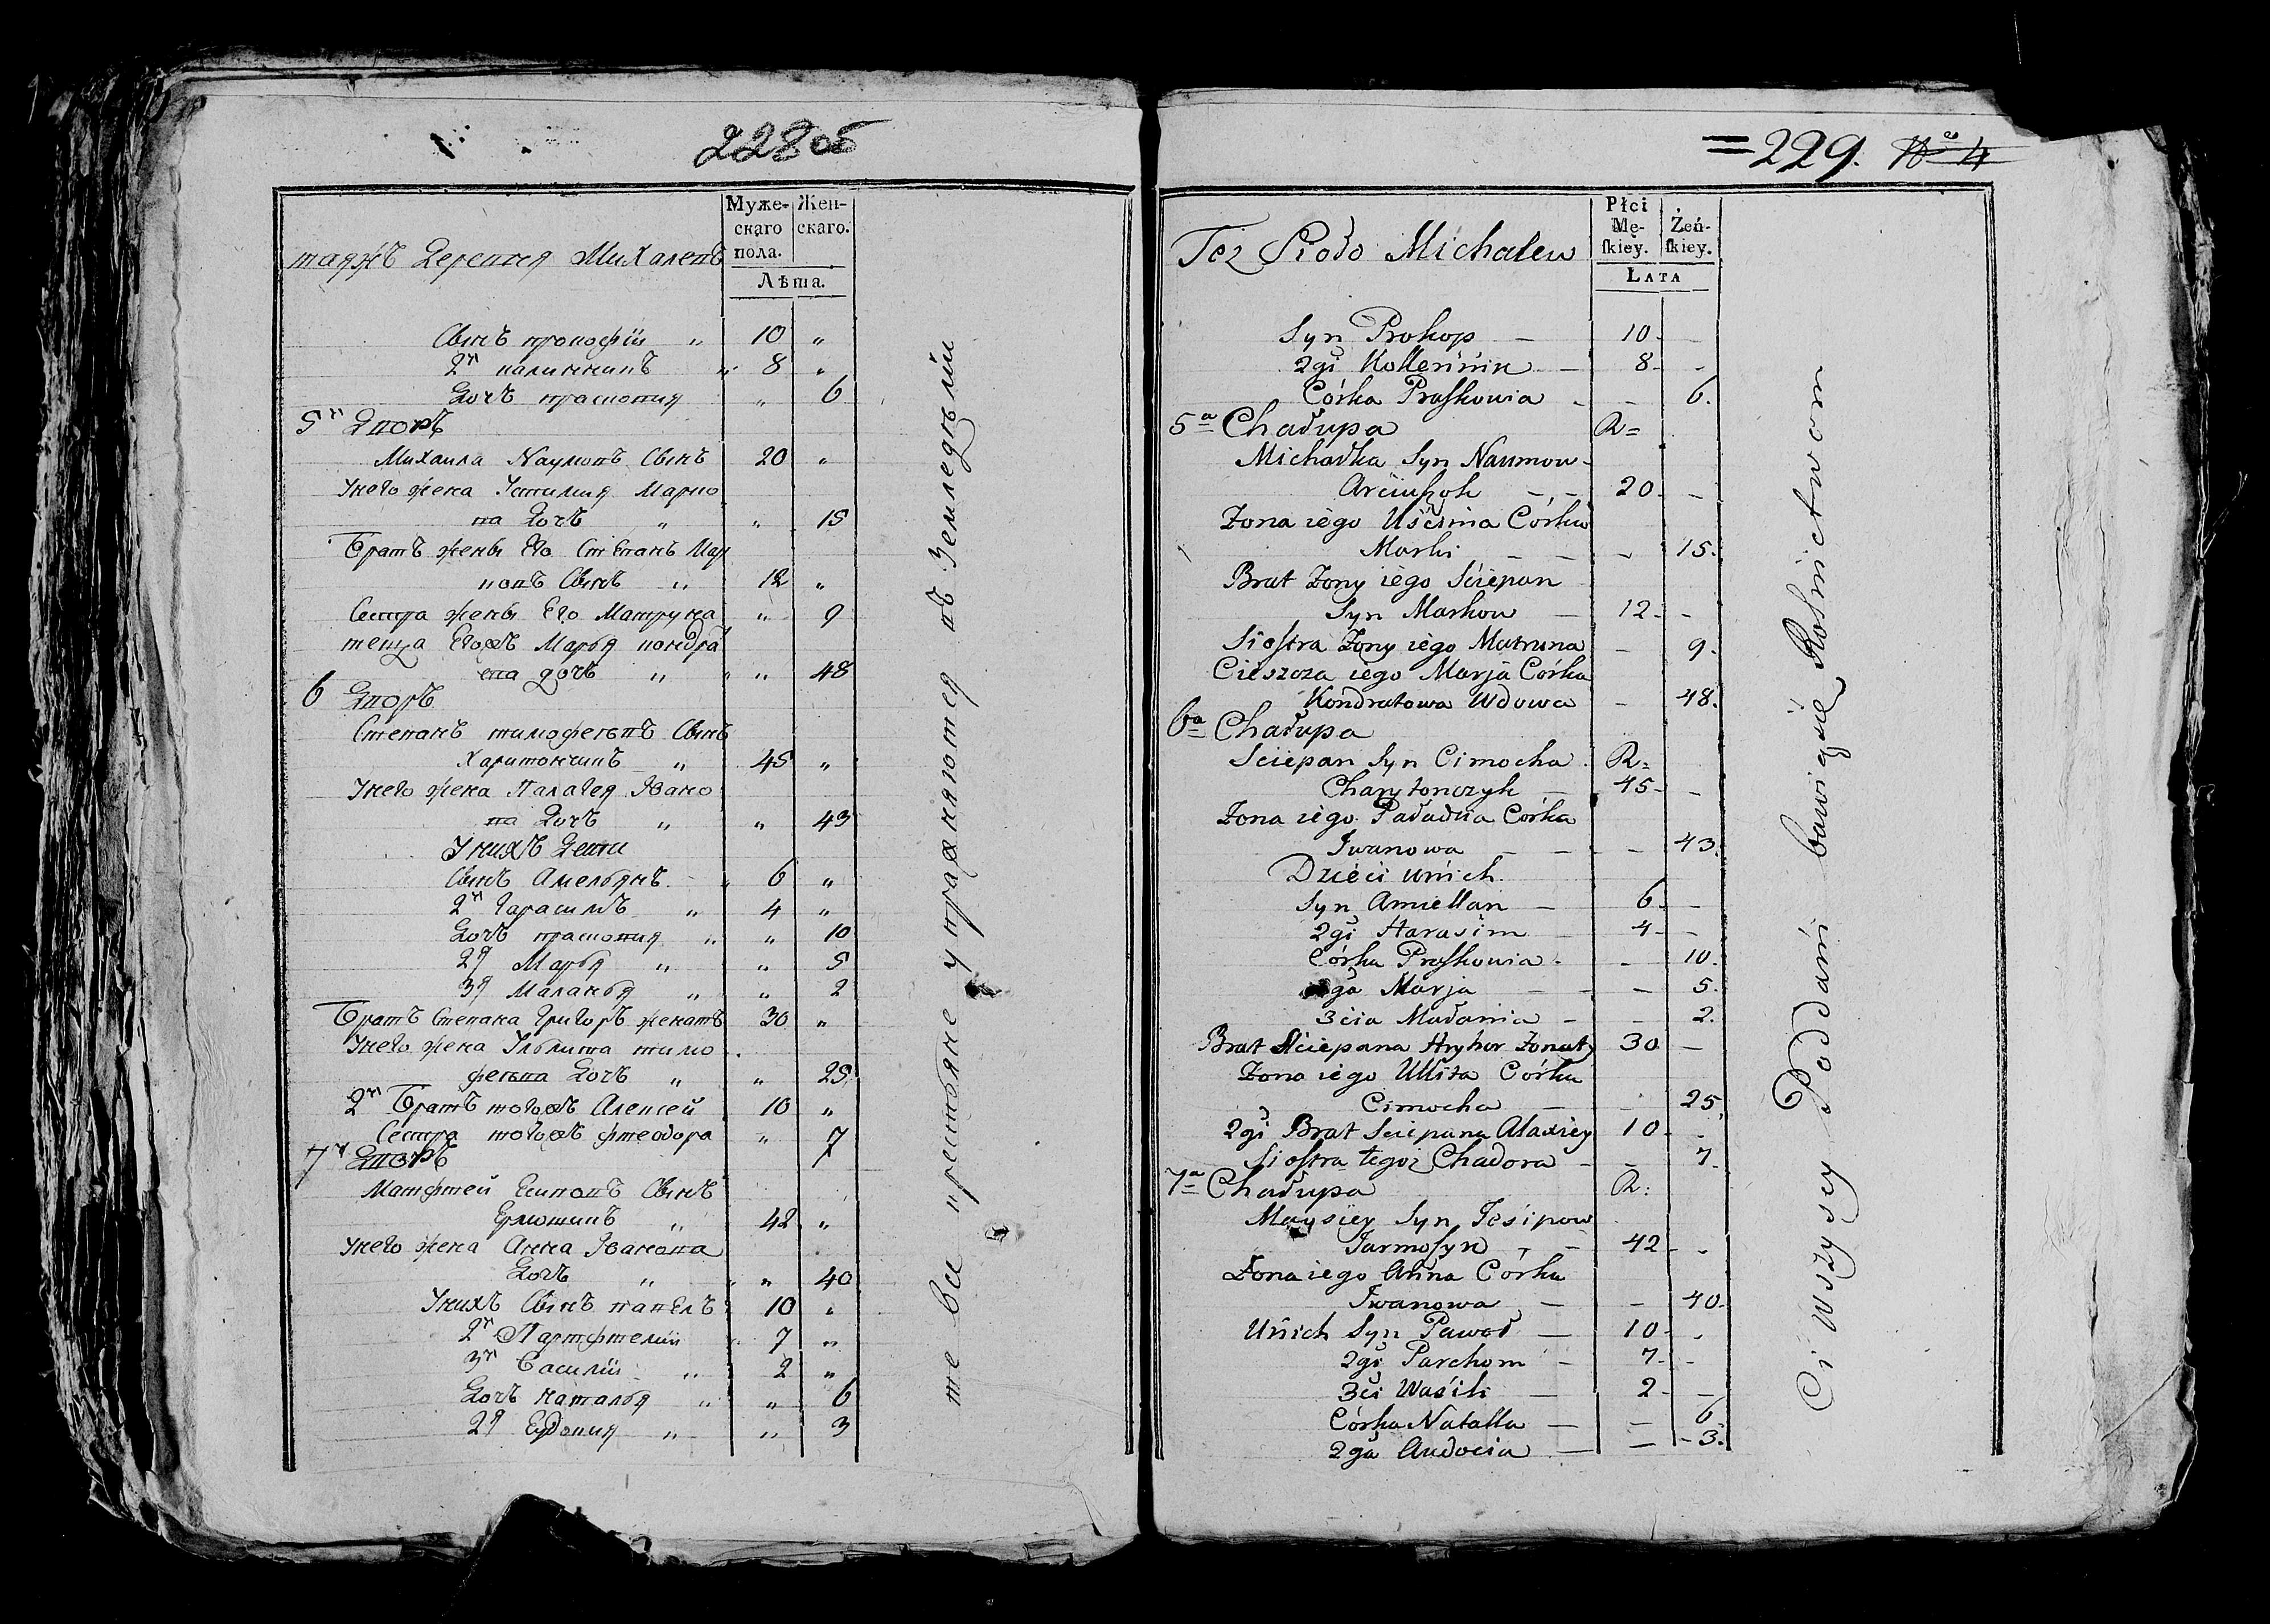 228 об
Муже-
скаго
пола.
Жен-
скаго.
Лѣта.
таяжъ Деревня Михалевъ
Сынъ прокофiй " 10 "
2й калинникъ " 8 "
Дочъ прасковия " 6
5й Дворъ
Михаила Наумовъ Сынъ 20 "
Унего жена Устимия Марко
ва Дочъ " " 15
Братъ жены Его Степанъ Мар
ковъ Сынъ " 12 "
Сестра жены Его Матруна " 9
теща Егожъ Марья кондра
ева дочъ " " 48
6 Дворъ
Степанъ тимофеевъ Сынъ
Харитончикъ " 45 "
Унего жена Палагея Ивано
ва Дочъ " " 43
Унихъ Дети
Сынъ Амельянъ " 6 "
2й Гарасимъ " 4 "
Дочъ прасковия " " 10
2я Марья " " 5
3я Маланья " " 2
Братъ Степана Григоръ женатъ 30 "
Унего жена Ульлита тимо
феева Дочъ " " 25
2й Братъ тогожъ Алексей 10 "
Сестра тогожъ фтеодора " 7
7й Дворъ
Матфтей Есиповъ Сынъ
Ермошинъ " 42 "
Унего жена Анна Иванова
Дочъ " " 40
Унихъ Сынъ павелъ 10 "
2й Партфтелий " 7 "
3й Василий " 2 "
Дочъ наталья " " 6
2я Евдокия " " 3
те все крестьяне упражняются въ Земледѣлiи
=229. № 4
Płci
Mę-
skiey.
Żeń-
skiey.
LATA
Też Sioło Michalew
Syn Prokop — 10 —
2gi Kallennik — 8 —
Córka Praskowia — — 6.
5a Chałupa R=
Michałka Syn Naumow
Arciuszok — 20 —
Żona iego Uścinia Córka
Marki — — 15.
Brat Żony iego Ściepan
Syn Markow — 12 —
Siostra Żony iego Matruna — 9.
Cieszcza iego Marja Córka
Kondratowa Wdowa — 48.
6a Chałupa
Sciepan Syn Cimocha R=
Charytończyk — 45 —
Żona iego Paładiia Córka
Iwanowa — — 43.
Dzieci unich
Syn Amiellan — 6 —
2gi Harasim — 4 —
Córka Praskowia — — 10.
2ga Marja — — 5.
3cia Małania — — 2.
Brat Sciepana Hryhor Żonaty 30 —
Żona iego Ullita Córka
Cimocha — — 25.
2gi Brat Sciepana Alaxiey 10 —
Siostra tegoż Chadora — — 7.
7a Chałupa R:
Maysiey Syn Jesipow
Jarmoszyn — 42 —
Żona iego Anna Córka
Iwanowa — — 40.
Unich Syn Paweł — 10 —
2gi Parchom — 7 —
3ci Wasili — 2 —
Córka Natalla — — 6.
2ga Audocia — — 3.
Ci wszyscy Poddani bawią się Rolnictwom